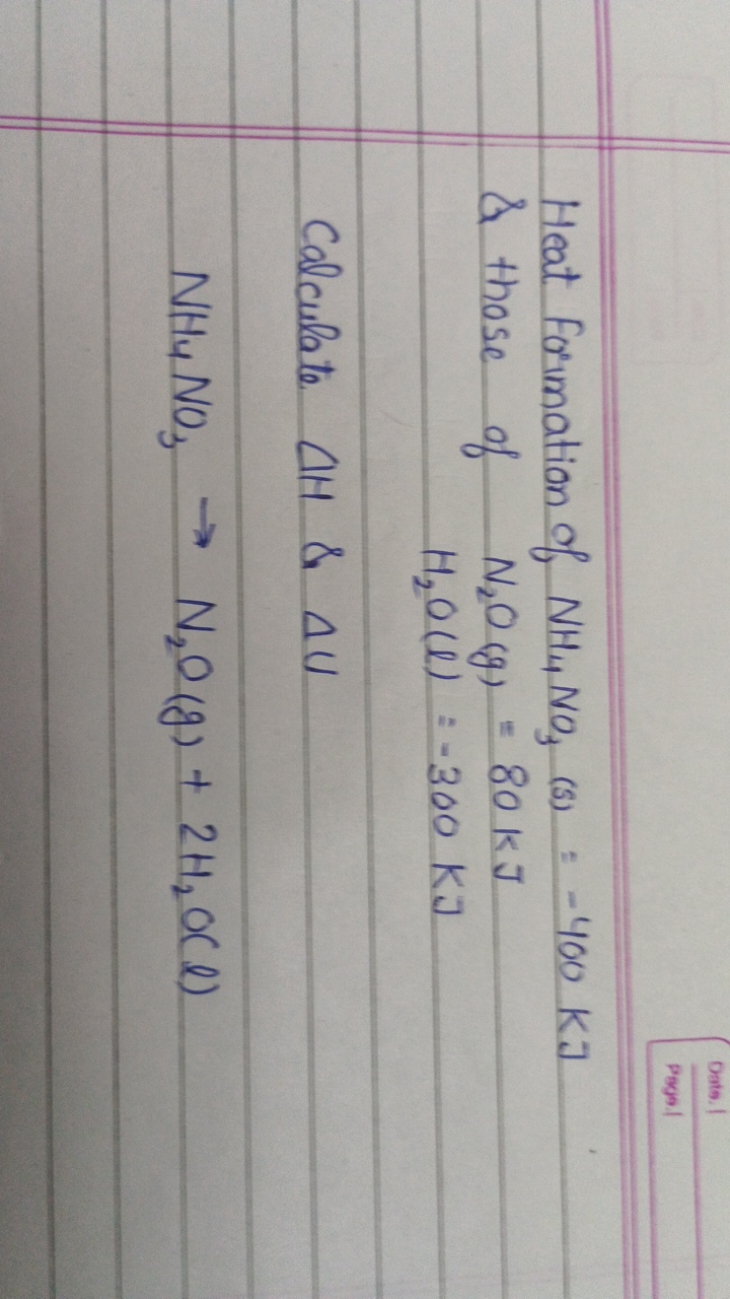 Date. |
Page. |
Heat Formation of NH4NO3 (s) = -400 KJ
& those of N2O(g) = 80 KJ
H2O(l) = -300 KJ
Calculate ΔH & ΔU
NH4NO3 → N2O(g) + 2H2O(l)